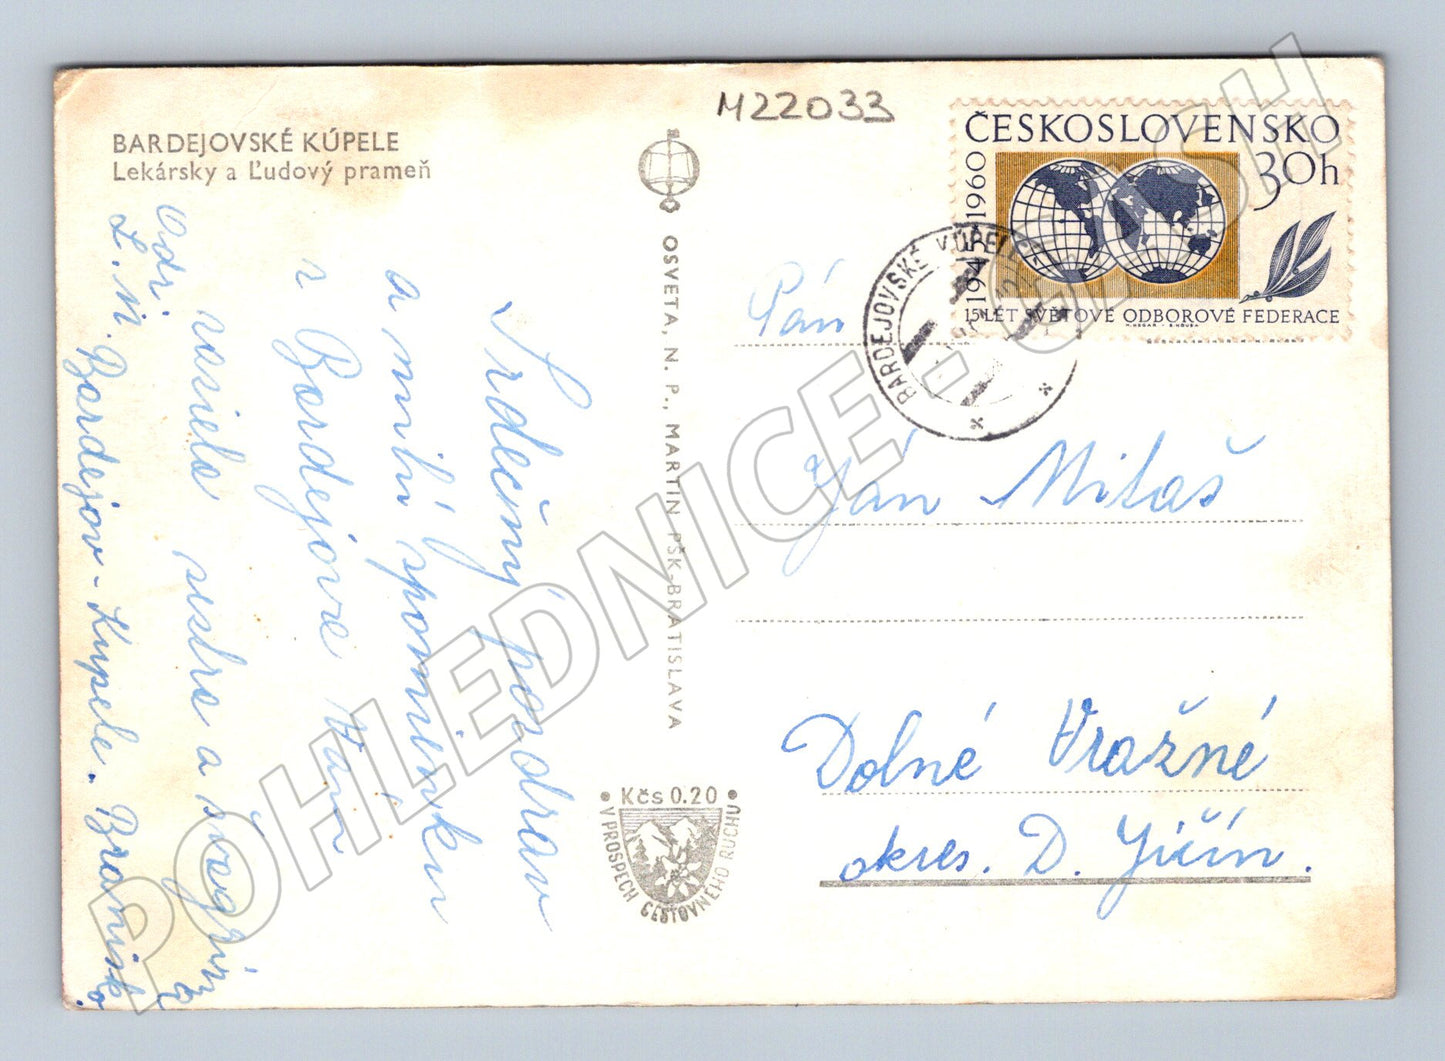 M22033
BARDEJOVSKÉ KÚPELE
Lekársky a Ľudový prameň
Srdečný pozdrav
a milú spomienku
z Bardejova Vám
Odr. zasiela sestra a švagriná
Z. M. Bardejov-Kupele.
OSVETA, N. P., MARTIN PŠK-BRATISLAVA
Kčs 0.20
V PROSPECH CESTOVNÉHO RUCHU
ČESKOSLOVENSKO
1945-1960
30h
15 LET SVĚTOVÉ ODBOROVÉ FEDERACE
BARDEJOVSKÉ KÚPELE
Pán
Ján Mitaš
Dolné Vražné
okres. D. Jičín.
POHLEDNICE - GASH